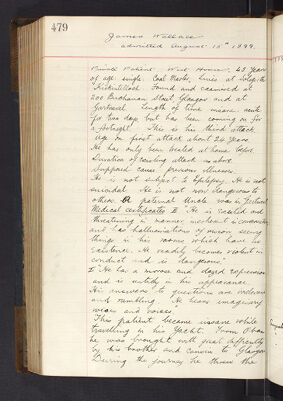 479
James Wallace
admitted August 15th 1899.
Private Patient. West House. 43 years
of age single. Coal Master, lives at
Kirkintilloch. Found and examined at
200 Buchanan Street Glasgow and at
Gartnavel. Length of time insane acute
for two days but has been coming on for
a fortnight. This is his third attack
age on first attack about 24 years
He has only been treated at home before.
Duration of existing attack as above
Supposed cause previous illnesses.
He is not subject to Epilepsy. He is not
suicidal. He is not now dangerous to
others. A paternal Uncle was in Gartnavel
Medical Certificates I. He is excited and
threatening in manner, incoherent in conversation
and has hallucinations of vision seeing
things in his rooms which have no
existence. He readily becomes violent in
conduct and is dangerous.
II He has a morose and dazed expression
and is untidy in his appearance.
His answers to questions are irrelevant
and rambling. He hears imaginary
noises and voices.
This patient became insane while
travelling in his Yacht. From Oban
he was brought with great difficulty
by his brother and convoy to Glasgow
During the journey he threw the